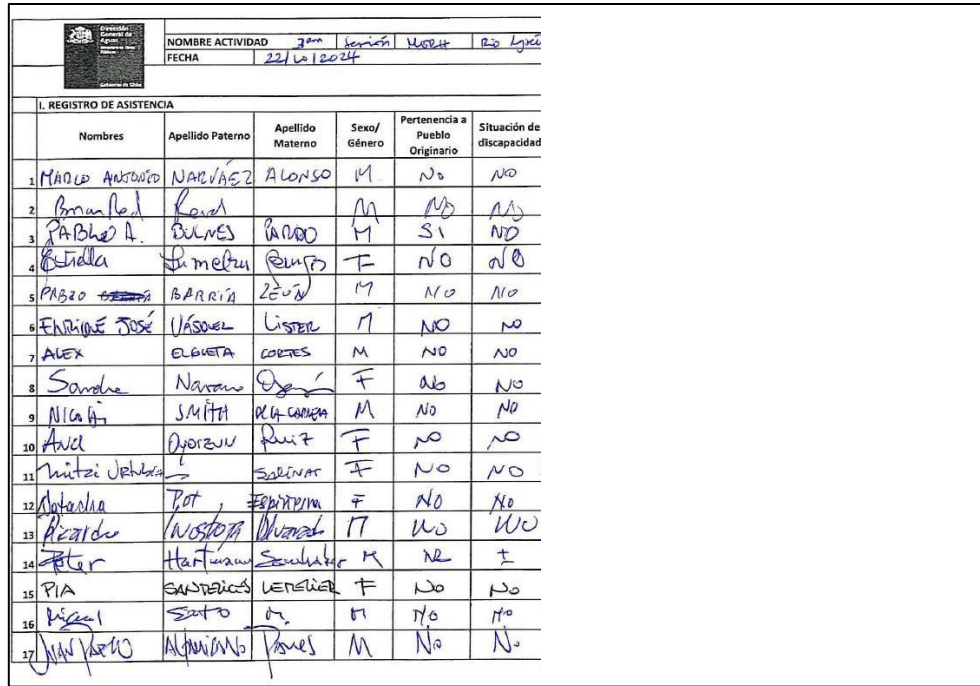 Dirección General de Aguas
Gobierno de Chile
NOMBRE ACTIVIDAD 3era Sesión MORH Rio
FECHA 22/10/2024
I. REGISTRO DE ASISTENCIA
Nombres Apellido Paterno Apellido Materno Sexo/ Género Pertenencia a Pueblo Originario Situación de discapacidad
1 MARCO ANTONIO NARVÁEZ ALONSO M No NO
2 Reid M NO NO
3 PABLO A. BULNES PARDO M SI NO
4 Estrella F NO NO
5 PABLO BARRÍA LEÓN M NO NO
6 ENRIQUE JOSÉ VÁSQUEZ LISTER M NO NO
7 ALEX ELGUETA CORTES M NO NO
8 Sandra Navarro F No
9 Nicolás SMITH DE LA CARRERA M No No
10 Ana OYARZUN Ruiz F NO NO
11 Mitzi URtubia SALINAS F NO NO
12 Natacha Pot Espinoza F No No
13 Ricardo INOSTROZA Alvarado M NO NO
14 Peter Hartmann M
15 PIA SANTELICES LETELIER F No No
16 Miguel Soto M. M No No
17 JUAN PABLO M No No